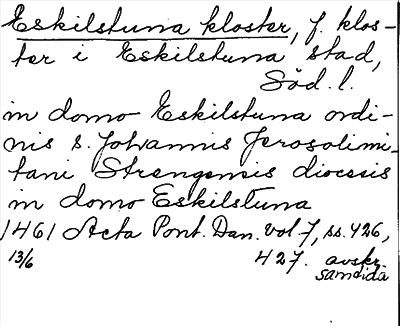 Eskilstuna kloster, f. klos-
ter i Eskilstuna stad,
Söd. l.
in domo Eskilstuna ordi-
nis s. Johannis Jerosolimi-
tani Strengensis diocesis
in domo Eskilstuna
1461 Acta Pont. Dan. vol. 7, ss. 426,
13/6 427. avskr.
samtida